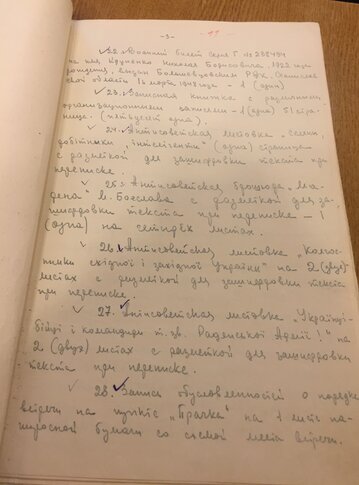 -3-
22. Военный билет серия Г. № 238484
на имя Круценко Николая Борисовича, 1922 года
рождения, выдан Большевцовским РВК, Станислав-
ской области 16 марта 1948 года - 1 (один)
23. Записная книжка с различными
организационными записями - 1 (одна) 51 стра-
ница. (пятьдесят одна).
24. Антисоветская листовка "Селяни,
робітники, інтелігенти" (одна) страница
с разметкой для зашифровки текста при
переписке.
25. Антисоветская брошюра "
" М. Богслава с разметкой для за-
шифровки текста при переписке - 1
(одна) на листах.
26. Антисоветская листовка "Колгос-
пники східної і західної України" на 2 (двух)
листах с разметкой для зашифровки текста
при переписке.
27. Антисоветская листовка "Українці
бійці і командири т. зв. Радянської Армії!" на
2 (двух) листах с разметкой для зашифровки
текста при переписке.
28. Запись обусловленности о порядке
встречи на пункте "Брачка" на 1 листе па-
пиросной бумаги со схемой места встречи.